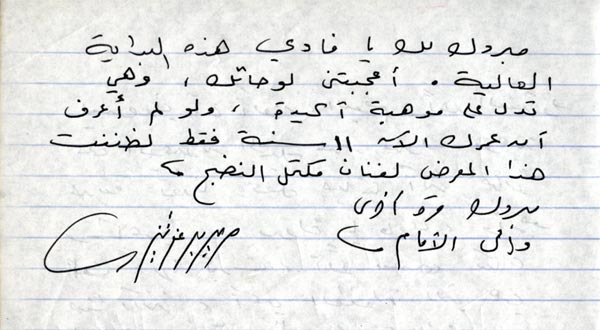 مبروك لك يا فادي هذه البداية
العالية. أعجبتني لوحاتك، وهي
تدل على موهبة أكيدة، ولو لم أعرف
أن عمرك الآن ١١ سنة فقط لظننت
هذا المعرض لفنان مكتمل النضج
مبروك مرة أخرى
وإلى الأمام